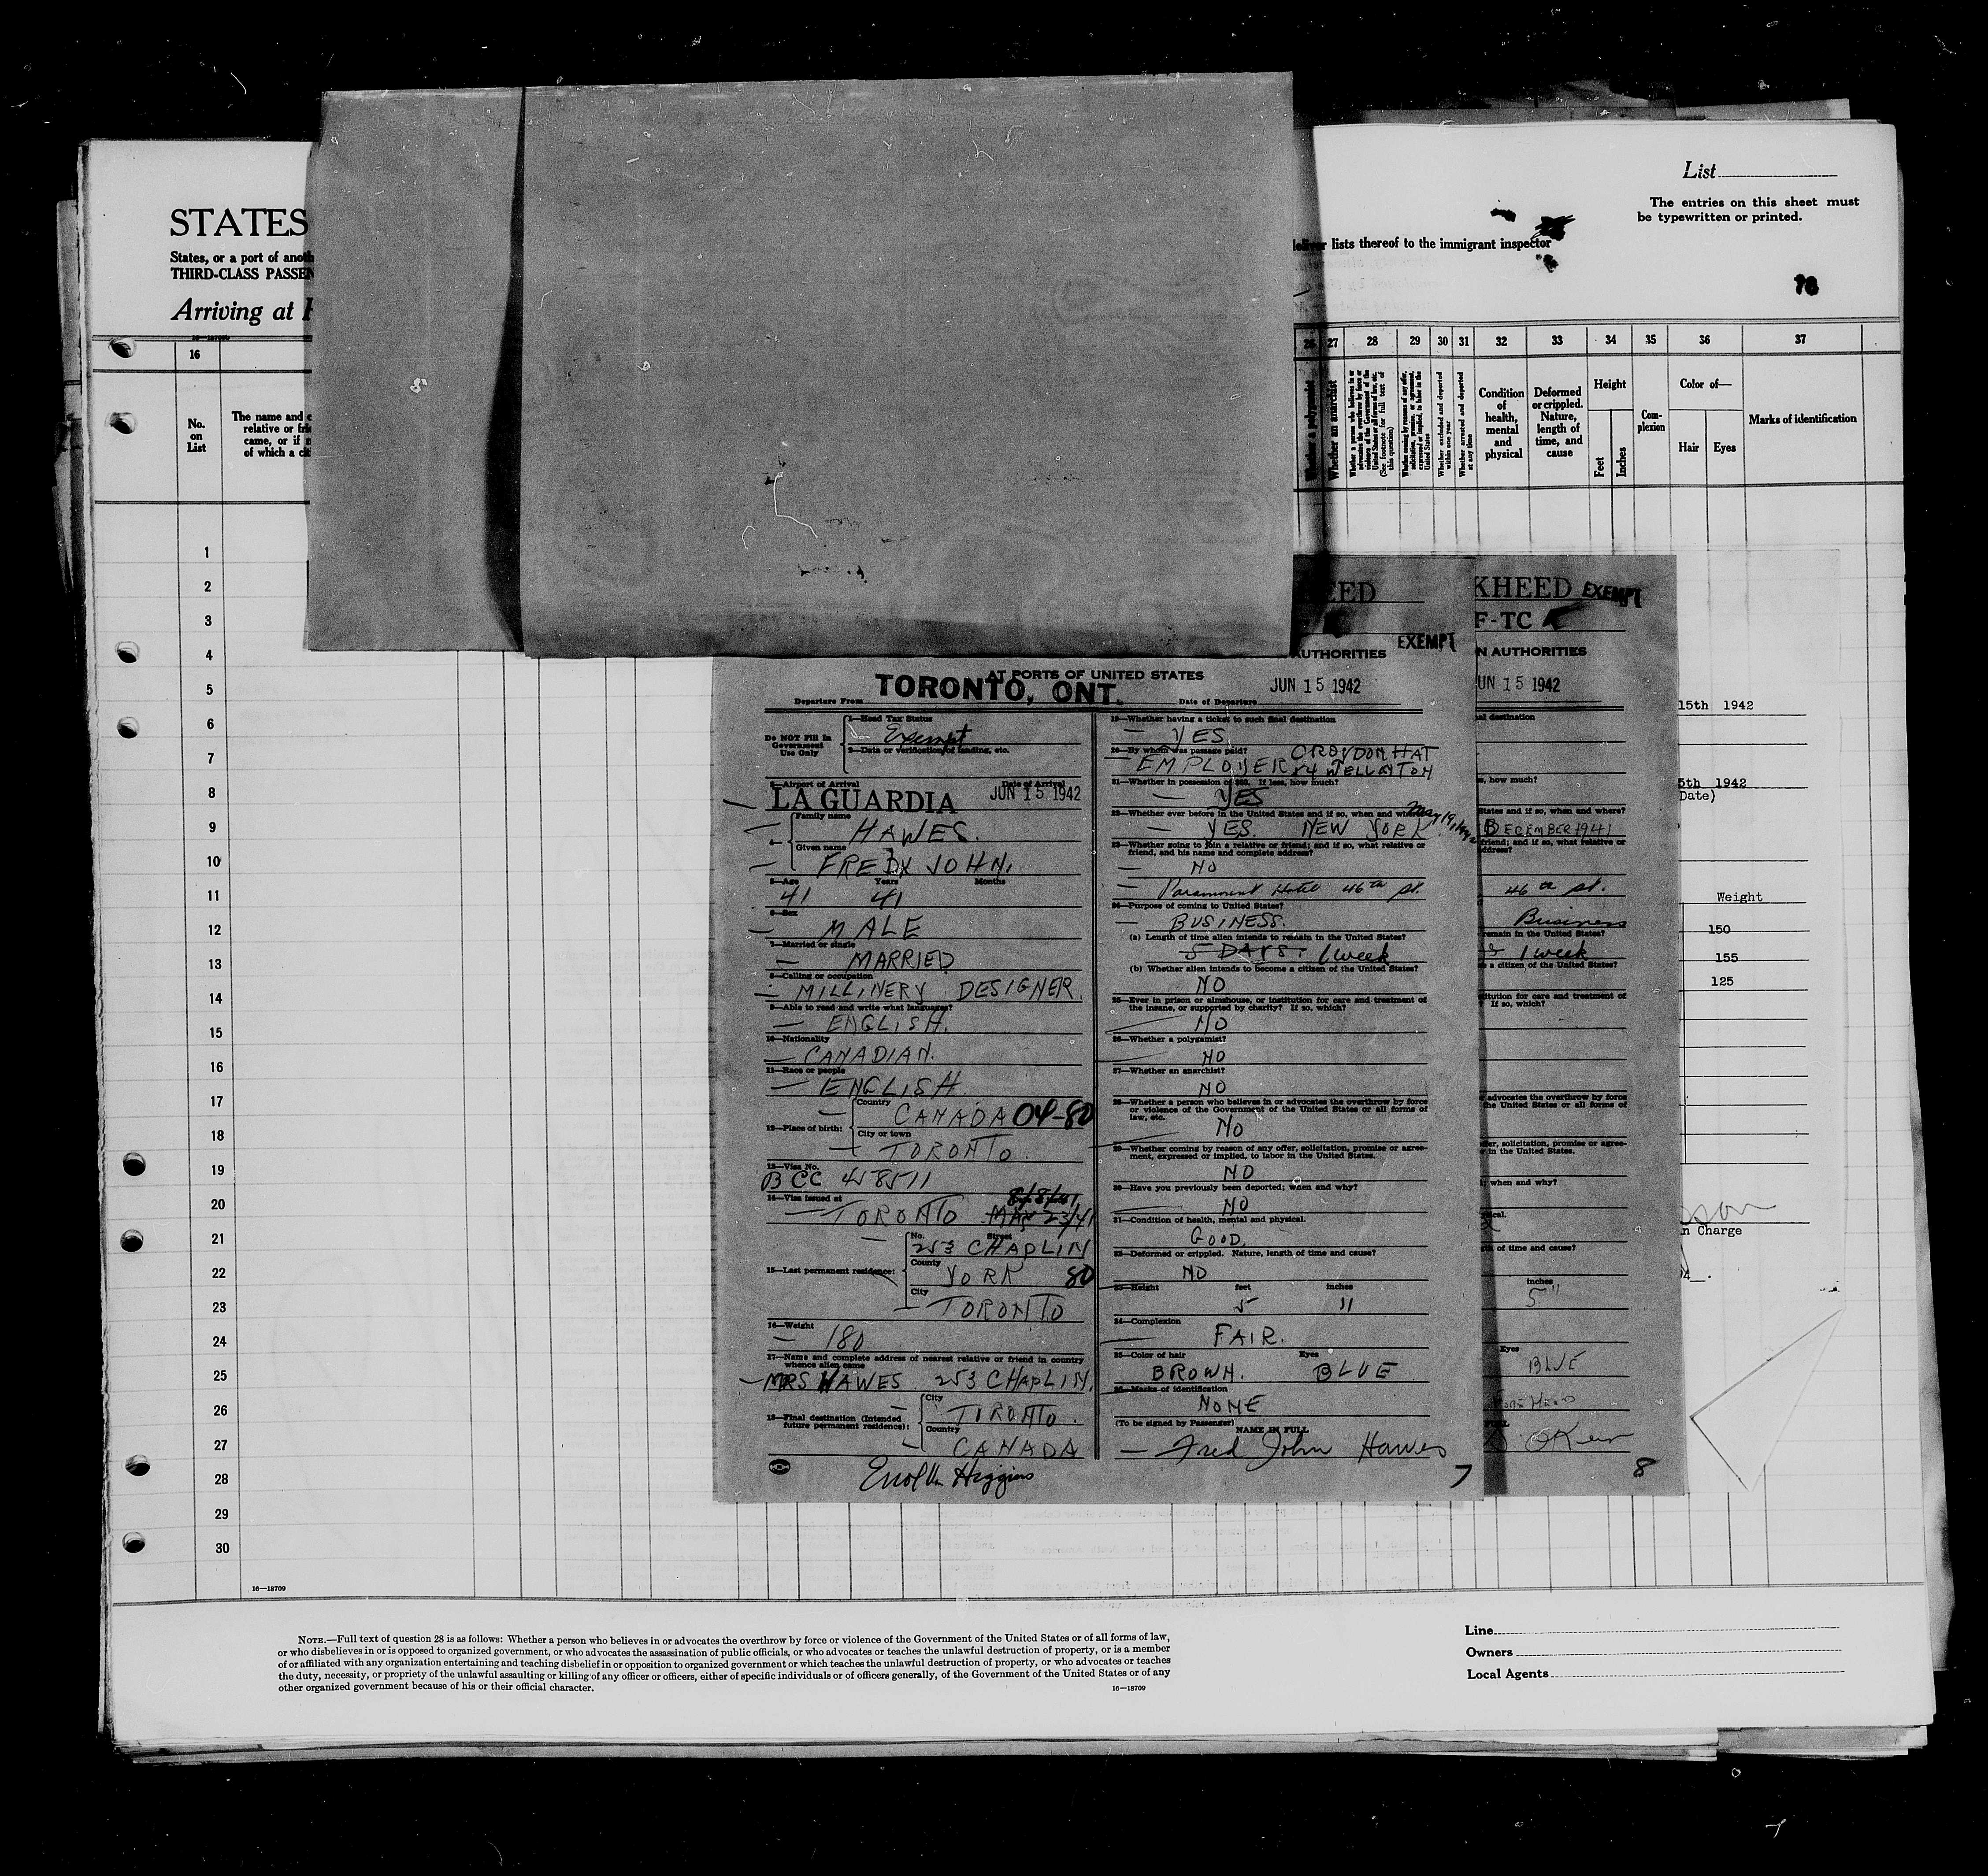 List
The entries on this sheet must
be typewritten or printed.
STATES
States, or a port of anoth
THIRD-CLASS PASSEN
Arriving at
deliver lists thereof to the immigrant inspector
78
16
No.
on
List
The name and
relative or fri
came, or if n
of which a cit
26 27 28 29 30 31 32 33 34 35 36 37
Whether a polygamist
Whether an anarchist
Whether a person who believes in or advocates the overthrow by force or violence of the Government of the United States or all forms of law, etc. (See footnote for full text of this question)
Whether coming by reason of any offer, solicitation, promise, or agreement, expressed or implied, to labor in the United States
Whether excluded and deported within one year
Whether arrested and deported at any time
Condition
of
health,
mental
and
physical
Deformed
or crippled.
Nature,
length of
time, and
cause
Height
Feet
Inches
Com-
plexion
Color of—
Hair
Eyes
Marks of identification
1
2
3
4
5
6
7
8
9
10
11
12
13
14
15
16
17
18
19
20
21
22
23
24
25
26
27
28
29
30
16—18709
EED
EXEMPT
AUTHORITIES
AT PORTS OF UNITED STATES
TORONTO, ONT.
JUN 15 1942
Departure From
Date of Departure
Do NOT Fill In
Government
Use Only
1—Head Tax Status
Exempt
2—Data or verification of landing, etc.
3—Airport of Arrival
Date of Arrival
LA GUARDIA
JUN 15 1942
4—
Family name
HAWES.
Given name
FREDK JOHN.
5—Age Years Months
41 41
6—Sex
MALE
7—Married or single
MARRIED
8—Calling or occupation
MILLINERY DESIGNER.
9—Able to read and write what languages?
ENGLISH.
10—Nationality
CANADIAN.
11—Race or people
ENGLISH
12—Place of birth:
Country
CANADA 04-80
City or town
TORONTO.
13—Visa No.
BCC 458511
14—Visa issued at
TORONTO MAY 23/41
15—Last permanent residence:
No. Street
253 CHAPLIN
County
YORK 80
City
TORONTO
16—Weight
180
17—Name and complete address of nearest relative or friend in country
whence alien came
MRS HAWES 253 CHAPLIN.
18—Final destination (Intended
future permanent residence):
City
TORONTO.
Country
CANADA
19—Whether having a ticket to such final destination
YES
20—By whom was passage paid?
CROYDON HAT
EMPLOYER 84 WELLINGTON
21—Whether in possession of $60. If less, how much?
YES
22—Whether ever before in the United States and if so, when and where?
YES. NEW YORK. May 19, 1942
23—Whether going to join a relative or friend; and if so, what relative or
friend, and his name and complete address?
NO
Paramount Hotel 46th St.
24—Purpose of coming to United States?
BUSINESS.
(a) Length of time alien intends to remain in the United States?
5 DAYS. 1 week
(b) Whether alien intends to become a citizen of the United States?
NO
25—Ever in prison or almshouse, or institution for care and treatment of
the insane, or supported by charity? If so, which?
NO
26—Whether a polygamist?
NO
27—Whether an anarchist?
NO
28—Whether a person who believes in or advocates the overthrow by force
or violence of the Government of the United States or all forms of
law, etc.
NO
29—Whether coming by reason of any offer, solicitation, promise or agree-
ment, expressed or implied, to labor in the United States.
NO
30—Have you previously been deported; when and why?
NO
31—Condition of health, mental and physical.
GOOD.
32—Deformed or crippled. Nature, length of time and cause?
NO
33—Height feet inches
5 11
34—Complexion
FAIR.
35—Color of hair Eyes
BROWN. BLUE
36—Marks of identification
NONE
(To be signed by Passenger)
NAME IN FULL
Fred John Hawes
7
Higgins
KHEED EXEMPT
F-TC
N AUTHORITIES
UN 15 1942
al destination
s, how much?
States and if so, when and where?
DECEMBER 1941
friend; and if so, what relative or
ddress?
46th St.
Business
remain in the United States?
1 week
a citizen of the United States?
titution for care and treatment of
If so, which?
advocates the overthrow by force
the United States or all forms of
fer, solicitation, promise or agree-
r in the United States.
; when and why?
ical.
th of time and cause?
inches
5"
Eyes
BLUE
8
15th 1942
5th 1942
Date)
Weight
150
155
125
n Charge
NOTE.—Full text of question 28 is as follows: Whether a person who believes in or advocates the overthrow by force or violence of the Government of the United States or of all forms of law,
or who disbelieves in or is opposed to organized government, or who advocates the assassination of public officials, or who advocates or teaches the unlawful destruction of property, or is a member
of or affiliated with any organization entertaining and teaching disbelief in or opposition to organized government or which teaches the unlawful destruction of property, or who advocates or teaches
the duty, necessity, or propriety of the unlawful assaulting or killing of any officer or officers, either of specific individuals or of officers generally, of the Government of the United States or of any
other organized government because of his or their official character.
16—18709
Line
Owners
Local Agents